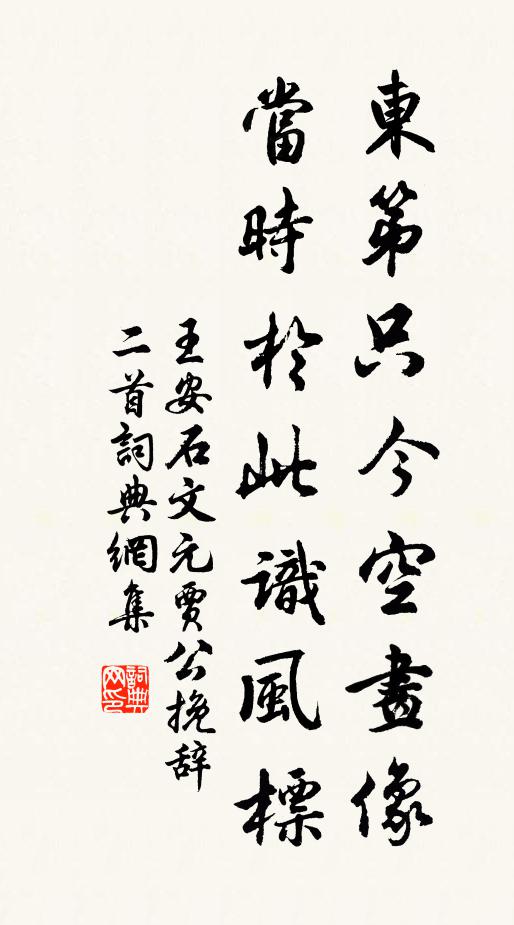 東第只今空畫像
當時於此識風標
王安石文元賈公挽辞
二首詞典網集
詞典网印